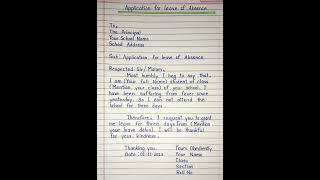 Application for leave of Absence
To,
The Principal
Your School Name
School Address
Sub: Application for leave of Absence
Respected Sir/Madam,
Most humbly I beg to say that,
I am (Your full Name) student of class
(Mention your class) of your school. I
have been suffering from fever since
yesterday. So I can not attend the
school for three days.
Therefore, I request you to grant
me leave for three days from (Mention
your leave dates). I will be thankful
for your kindness.
Thanking you. Yours Obediently
Date: 02-11-2023 Your Name
Class
Section
Roll No.